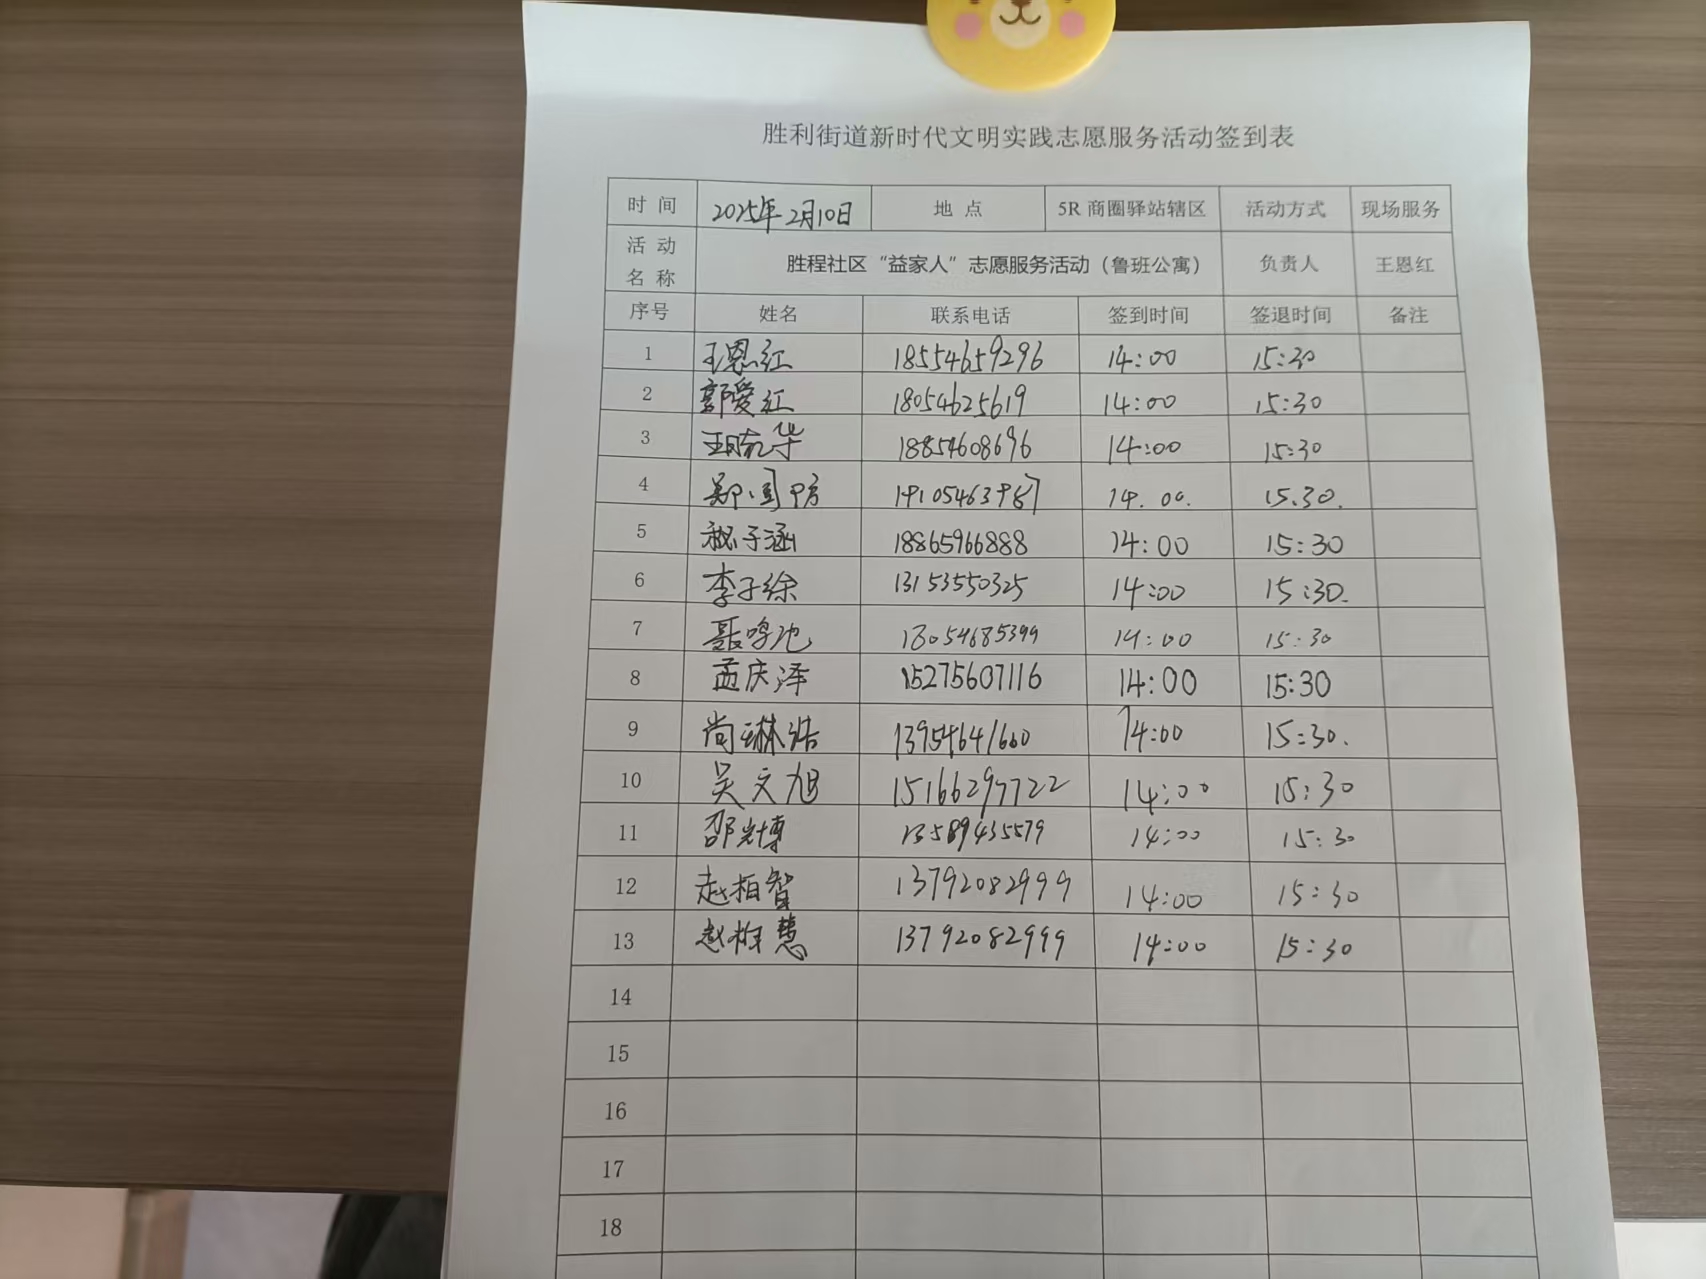 胜利街道新时代文明实践志愿服务活动签到表
时 间 2025年2月10日 地 点 5R 商圈驿站辖区 活动方式 现场服务
活 动 名 称 胜程社区“益家人”志愿服务活动（鲁班公寓） 负责人 王恩红
序号 姓名 联系电话 签到时间 签退时间 备注
1 王恩红 18554659296 14:00 15:30
2 郭爱红 18054625619 14:00 15:30
3 18854608696 14:00 15:30
4 14.00. 15.30.
5 18865966888 14:00 15:30
6 李子徐 13153550325 14:00 15:30.
7 18054685399 14:00 15:30
8 孟庆泽 15275607116 14:00 15:30
9 尚琳浩 13954641660 14:00 15:30.
10 吴文旭 15166297722 14:00 15:30
11 邵光博 13589435579 14:00 15:30
12 赵柏智 13792082999 14:00 15:30
13 赵柏慧 13792082999 14:00 15:30
14
15
16
17
18